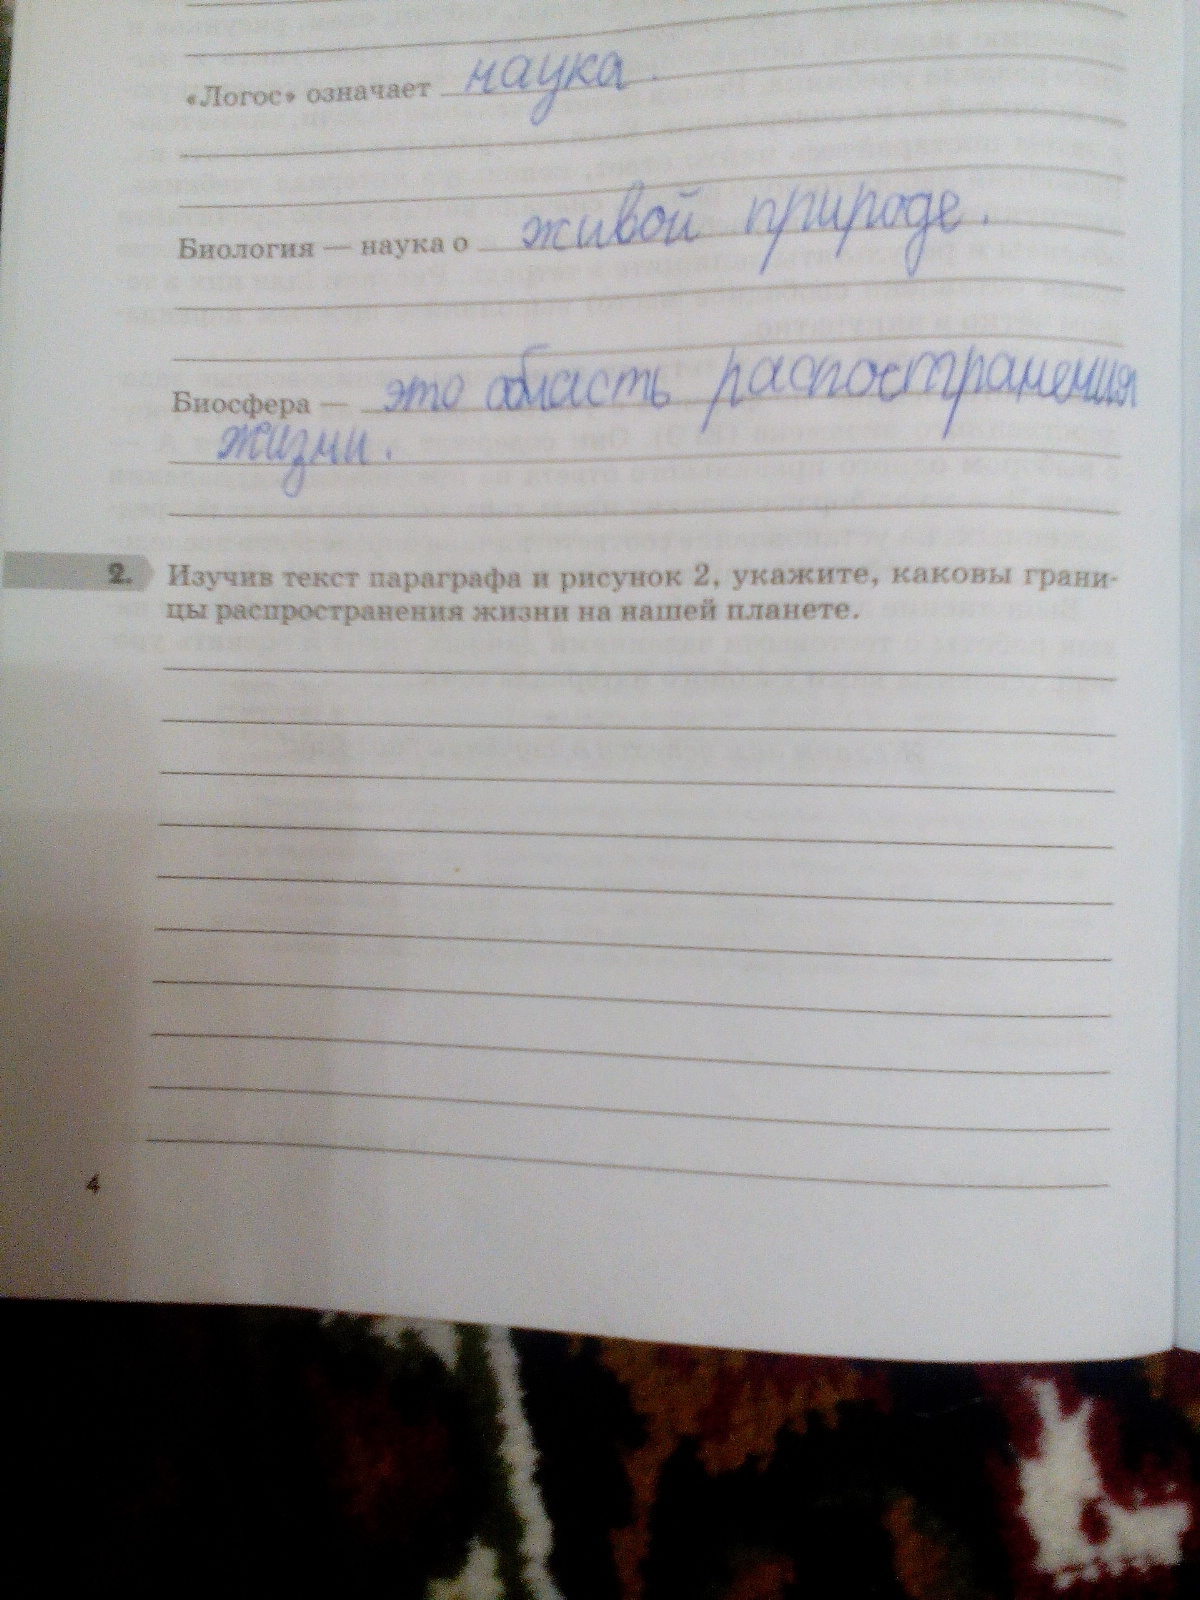 «Логос» означает наука.
Биология — наука о живой природе.
Биосфера — это область распостранения
жизни.
2. Изучив текст параграфа и рисунок 2, укажите, каковы грани-
цы распространения жизни на нашей планете.
4